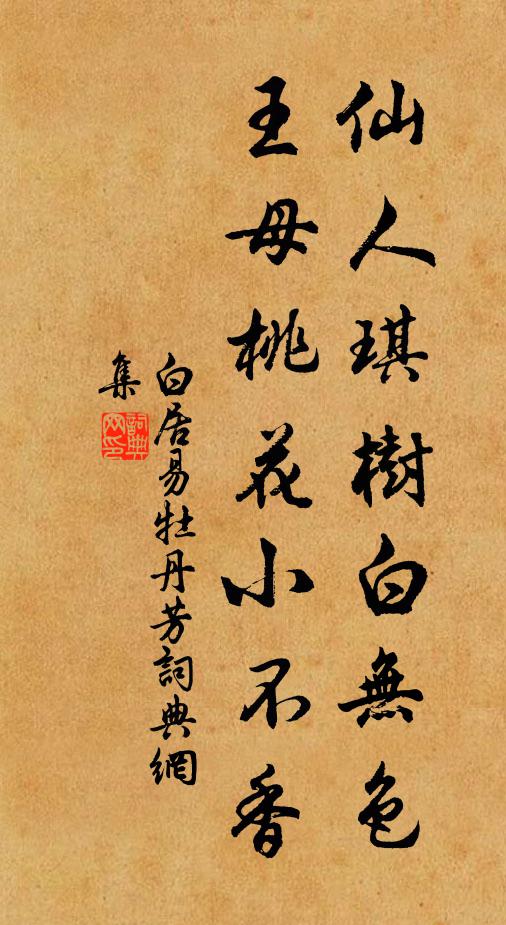 仙人琪樹白無色
王母桃花小不香
白居易牡丹芳詞典網
集
詞典网印